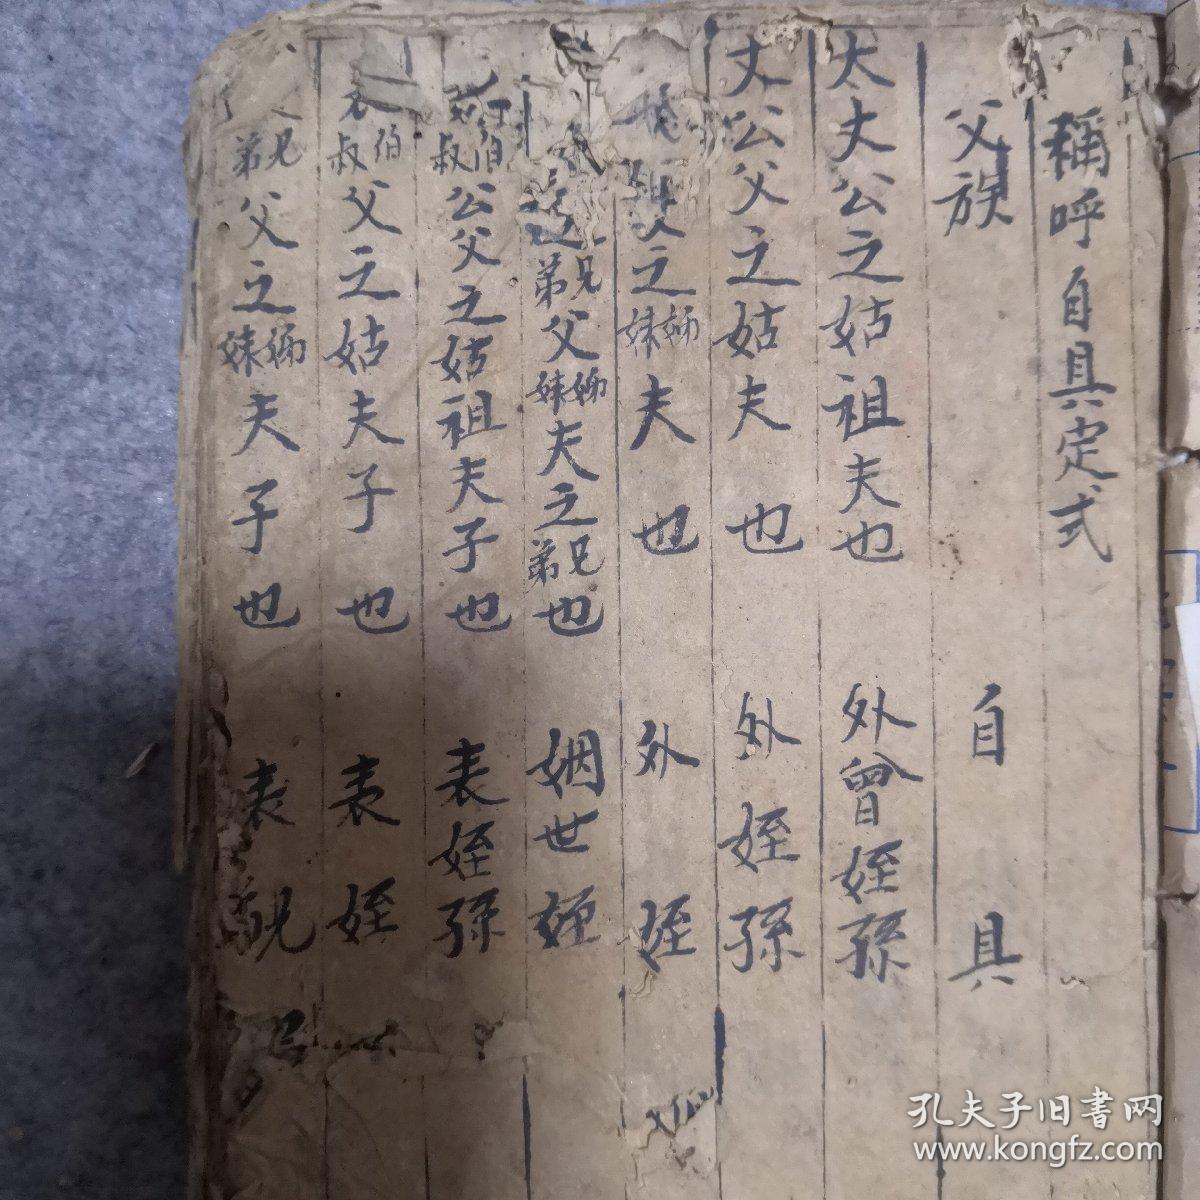 稱呼自具定式
父族 自具
太丈公之姑祖夫也 外曾姪孫
丈公父之姑夫也 外姪孫
父之姊妹夫也 外姪
兄弟父姊妹夫之兄弟也 姻世姪
伯叔公父之姑祖夫子也 表姪孫
表伯叔父之姑夫子也 表姪
兄弟父之姊妹夫子也 表
孔夫子旧书网
www.kongfz.com